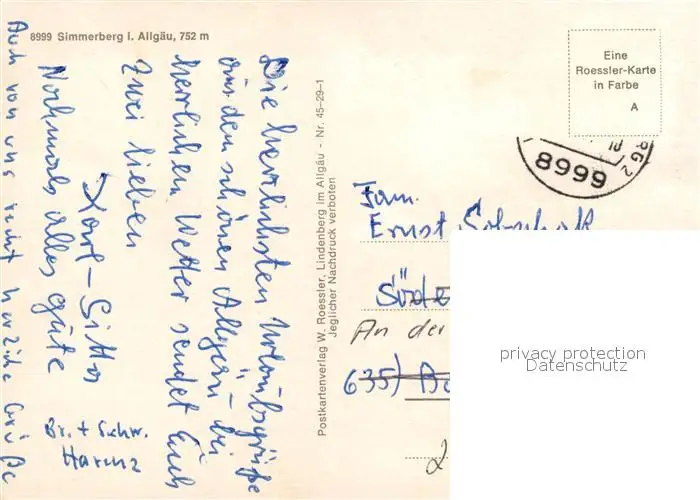 8999 Simmerberg i. Allgäu, 752 m
Die herrlichsten Urlaubsgrüße
aus dem schönen Allgäu – bei
herrlichem Wetter sendet Euch
zwei lieben
Nochmals alles gute
Br. + Schw.
Auch von uns recht herzliche Grüße
Postkartenverlag W. Roessler, Lindenberg im Allgäu - Nr. 45-29-1
Jeglicher Nachdruck verboten
Eine
Roessler-Karte
in Farbe
A
8999
Fam.
Ernst
Süde
An der
635)
privacy protection
Datenschutz